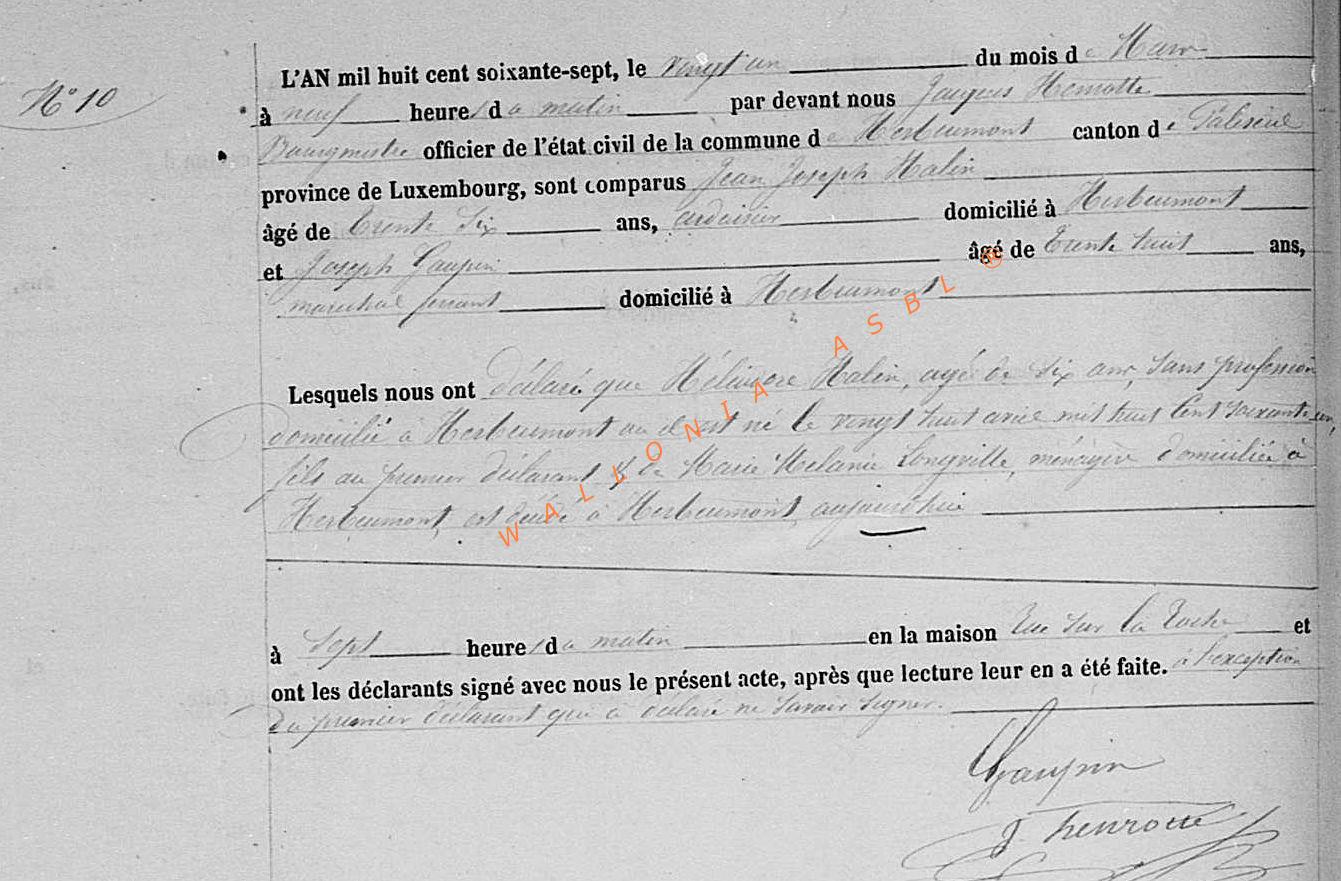 N° 10
L'AN mil huit cent soixante-sept, le vingt un du mois de Mars
à neuf heures du matin par devant nous Jacques Henrotte
Bourgmestre officier de l'état civil de la commune de Herbeumont canton de Paliseul
province de Luxembourg, sont comparus Jean Joseph Halin
âgé de trente six ans, ardoisier domicilié à Herbeumont
et Joseph Gaupin âgé de trente huit ans,
marechal ferrant domicilié à Herbeumont
Lesquels nous ont déclaré que Halin, agé de six ans, sans profession
domicilié à Herbeumont où il est né le vingt huit avril mil huit cent soixante un,
fils du premier déclarant & de Marie Melanie Longville, ménagère domiciliée à
Herbeumont, est décédé à Herbeumont, aujourd'hui
à sept heures du matin en la maison Rue sur la Roche et
ont les déclarants signé avec nous le présent acte, après que lecture leur en a été faite. à l'exception
du premier déclarant qui a déclaré ne savoir signer.
Gaupin
J. henrotte
WALLONIA ASBL ©